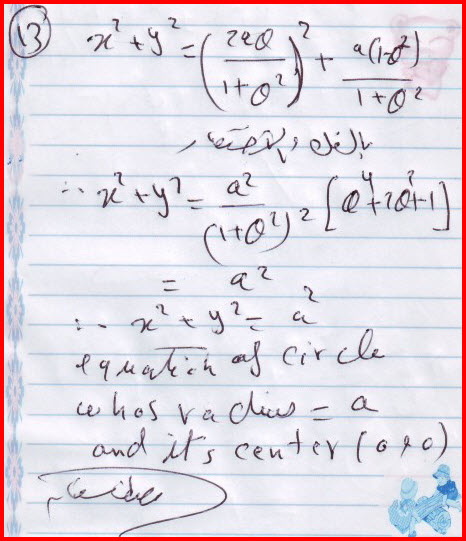 13
x² + y² = (2aθ / 1+θ²)² + a(1-θ²) / 1+θ²
بالفك والاختصار
∴ x² + y² = a² / (1+θ²)² [θ⁴+2θ²+1]
= a²
∴ x² + y² = a²
equation of circle
whos radius = a
and it's center (0,0)